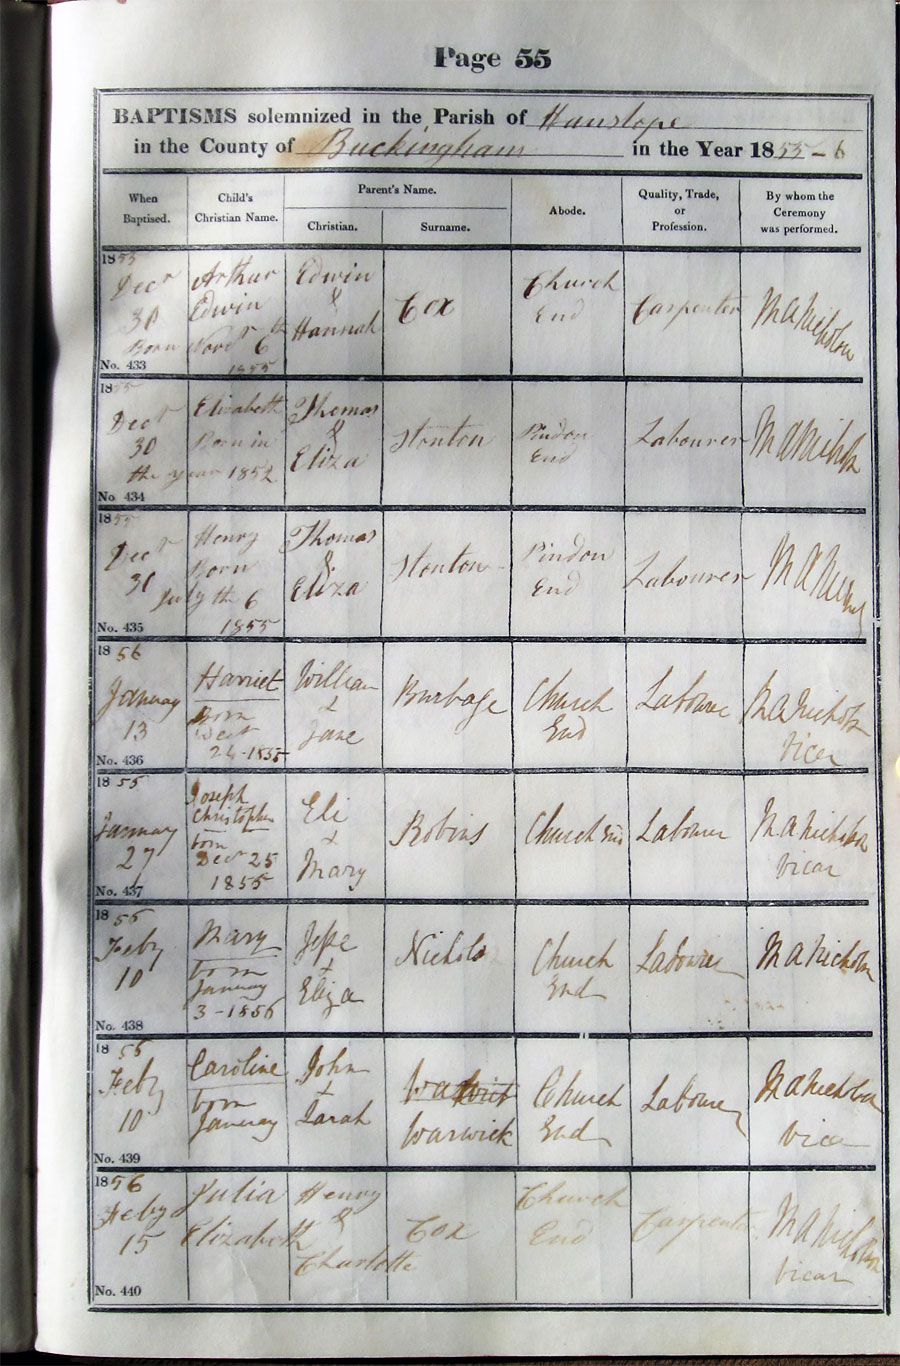 Page 55
BAPTISMS solemnized in the Parish of Hanslope
in the County of Buckingham in the Year 1855-6
When Baptised.
Child's Christian Name.
Parent's Name.
Christian.
Surname.
Abode.
Quality, Trade, or Profession.
By whom the Ceremony was performed.
1855
Decr 30
Arthur Edwin
Born Novr 6th 1855
Edwin & Hannah
Cox
Church End
Carpenter
No. 433
1855
Decr 30
Elizabeth
Born in the year 1852
Thomas & Eliza
Stonton
Pindon End
Labourer
No. 434
1855
Decr 30
Henry
Born July the 6 1855
Thomas & Eliza
Stonton
Pindon End
Labourer
No. 435
1856
January 13
Harriet
Born Dec 24-1855
William & Jane
Burbage
Church End
Labourer
M A Nicholson
Vicar
No. 436
1855
January 27
Joseph Christopher
born Decr 25 1855
Eli & Mary
Robins
Church End
Labourer
M A Nicholson
Vicar
No. 437
1856
Feby 10
Mary
born January 3-1856
Jesse & Eliza
Nichols
Church End
Labourer
M A Nicholson
No. 438
1856
Feby 10
Caroline
born January
John & Sarah
Warwick
Church End
Labourer
M A Nicholson
Vicar
No. 439
1856
Feby 15
Julia Elizabeth
Henry & Charlotte
Cox
Church End
Carpenter
M A Nicholson
Vicar
No. 440